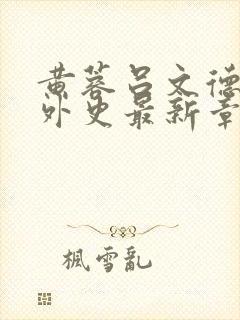 黄蓉吕文德
外史最新章
楓雪亂